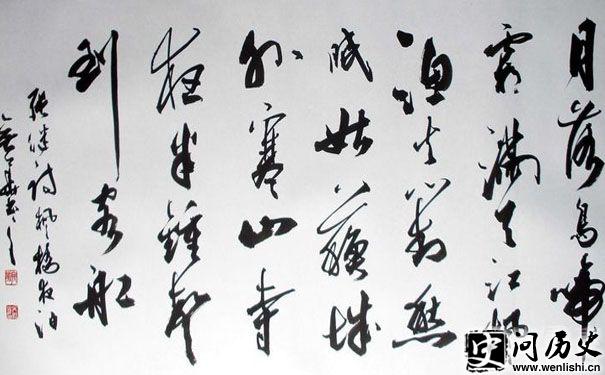 月落烏啼
霜滿天江楓
漁火對愁
眠姑蘇城
外寒山寺
夜半鐘聲
到客船
張繼詩楓橋夜泊
史问历史
www.wenlishi.cn